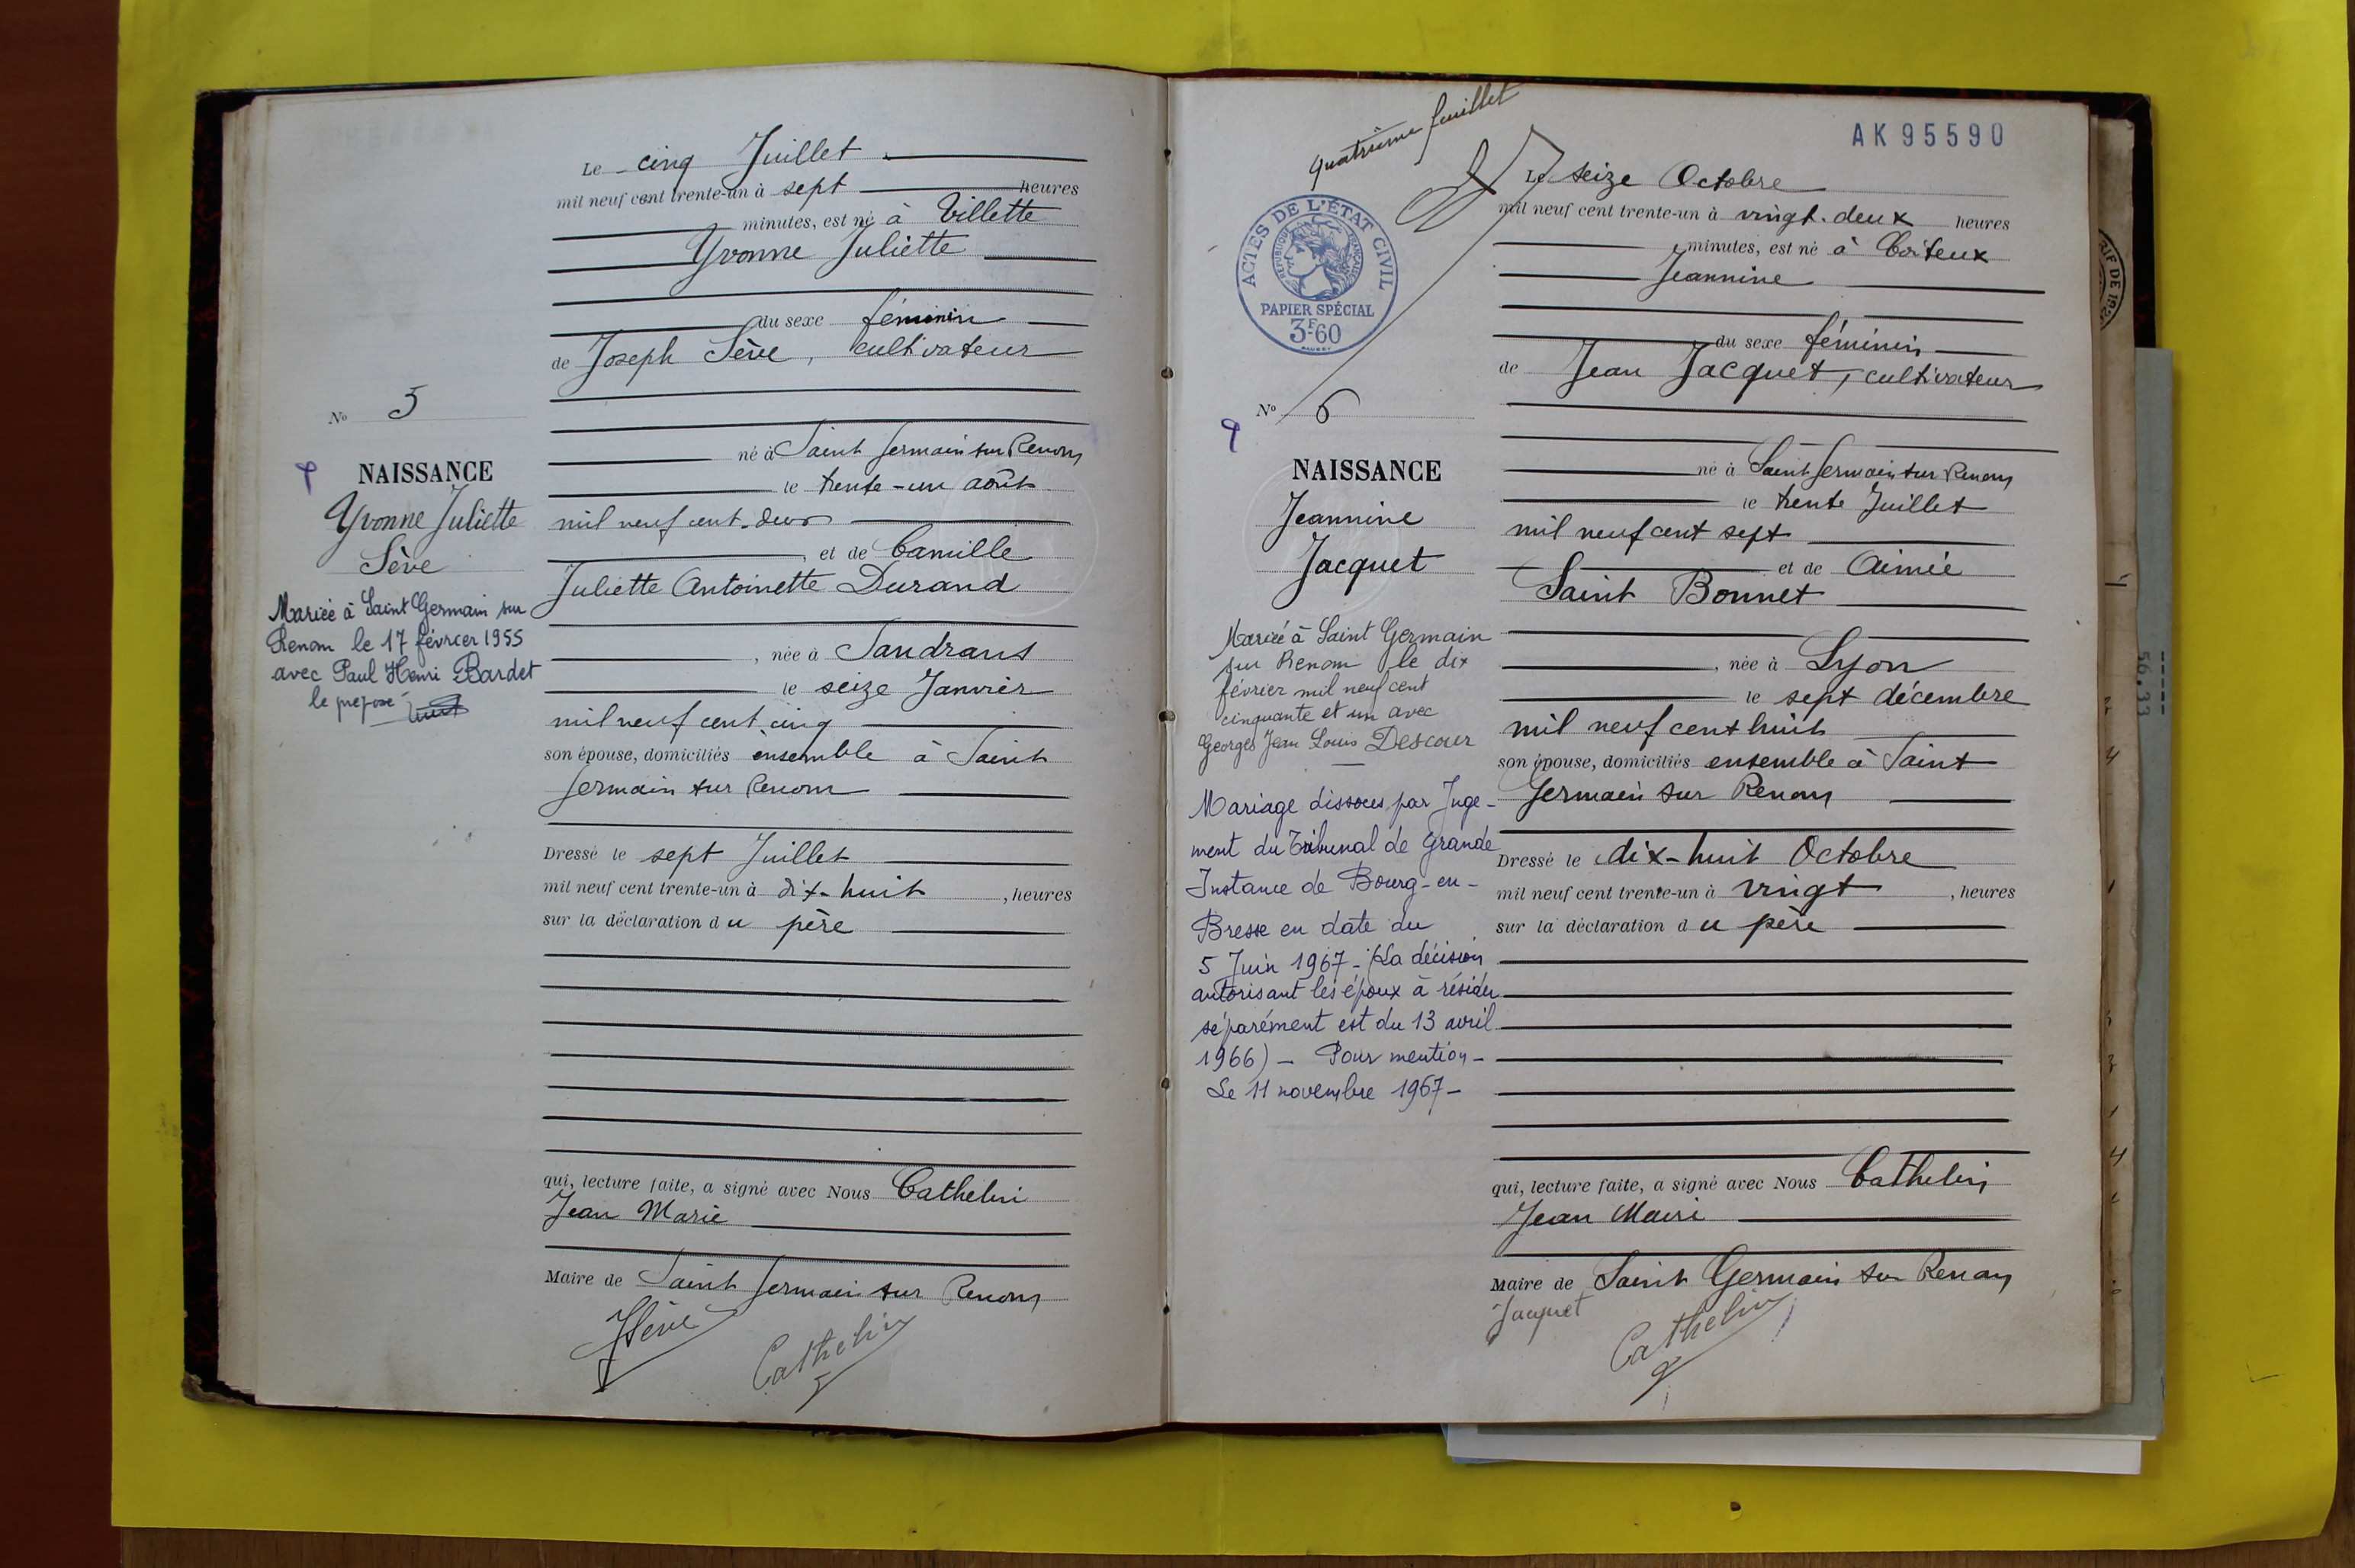 Le cinq Juillet
mil neuf cent trente-un à sept heures
minutes, est né à Villette
Yvonne Juliette
du sexe féminin
de Joseph Sève, cultivateur
No 5
né à Saint Germain sur Renom
NAISSANCE
le trente-un août
Yvonne Juliette
mil neuf cent deux
Sève
et de Camille
Juliette Antoinette Durand
Mariée à Saint Germain sur
Renom le 17 février 1955
avec Paul Henri Bardet
le préposé
, née à Sandrans
le seize Janvier
mil neuf cent cinq
son épouse, domiciliés ensemble à Saint
Germain sur Renom
Dressé le sept Juillet
mil neuf cent trente-un à dix-huit , heures
sur la déclaration du père
qui, lecture faite, a signé avec Nous Cathelin
Jean Marie
Maire de Saint Germain sur Renom
JSève
Cathelin
Quatrième feuillet
AK 95590
ACTES DE L'ÉTAT CIVIL
RÉPUBLIQUE FRANÇAISE
PAPIER SPÉCIAL
3F60
Le seize Octobre
mil neuf cent trente-un à vingt-deux heures
minutes, est né à Boiteux
Jeannine
du sexe féminin
de Jean Jacquet, cultivateur
No 6
né à Saint Germain sur Renom
NAISSANCE
le trente Juillet
Jeannine
mil neuf cent sept
Jacquet
et de Aimée
Saint Bonnet
Mariée à Saint Germain
sur Renom le dix
février mil neuf cent
cinquante et un avec
Georges Jean Louis Descour
Mariage dissous par Juge-
ment du Tribunal de Grande
Instance de Bourg-en-
Bresse en date du
5 Juin 1967 - (La décision
autorisant les époux à résider
séparément est du 13 avril
1966) - Pour mention -
Le 11 novembre 1967 -
, née à Lyon
le sept décembre
mil neuf cent huit
son épouse, domiciliés ensemble à Saint
Germain sur Renom
Dressé le dix-huit Octobre
mil neuf cent trente-un à vingt , heures
sur la déclaration du père
qui, lecture faite, a signé avec Nous Cathelin
Jean Marie
Maire de Saint Germain sur Renom
Jacquet
Cathelin